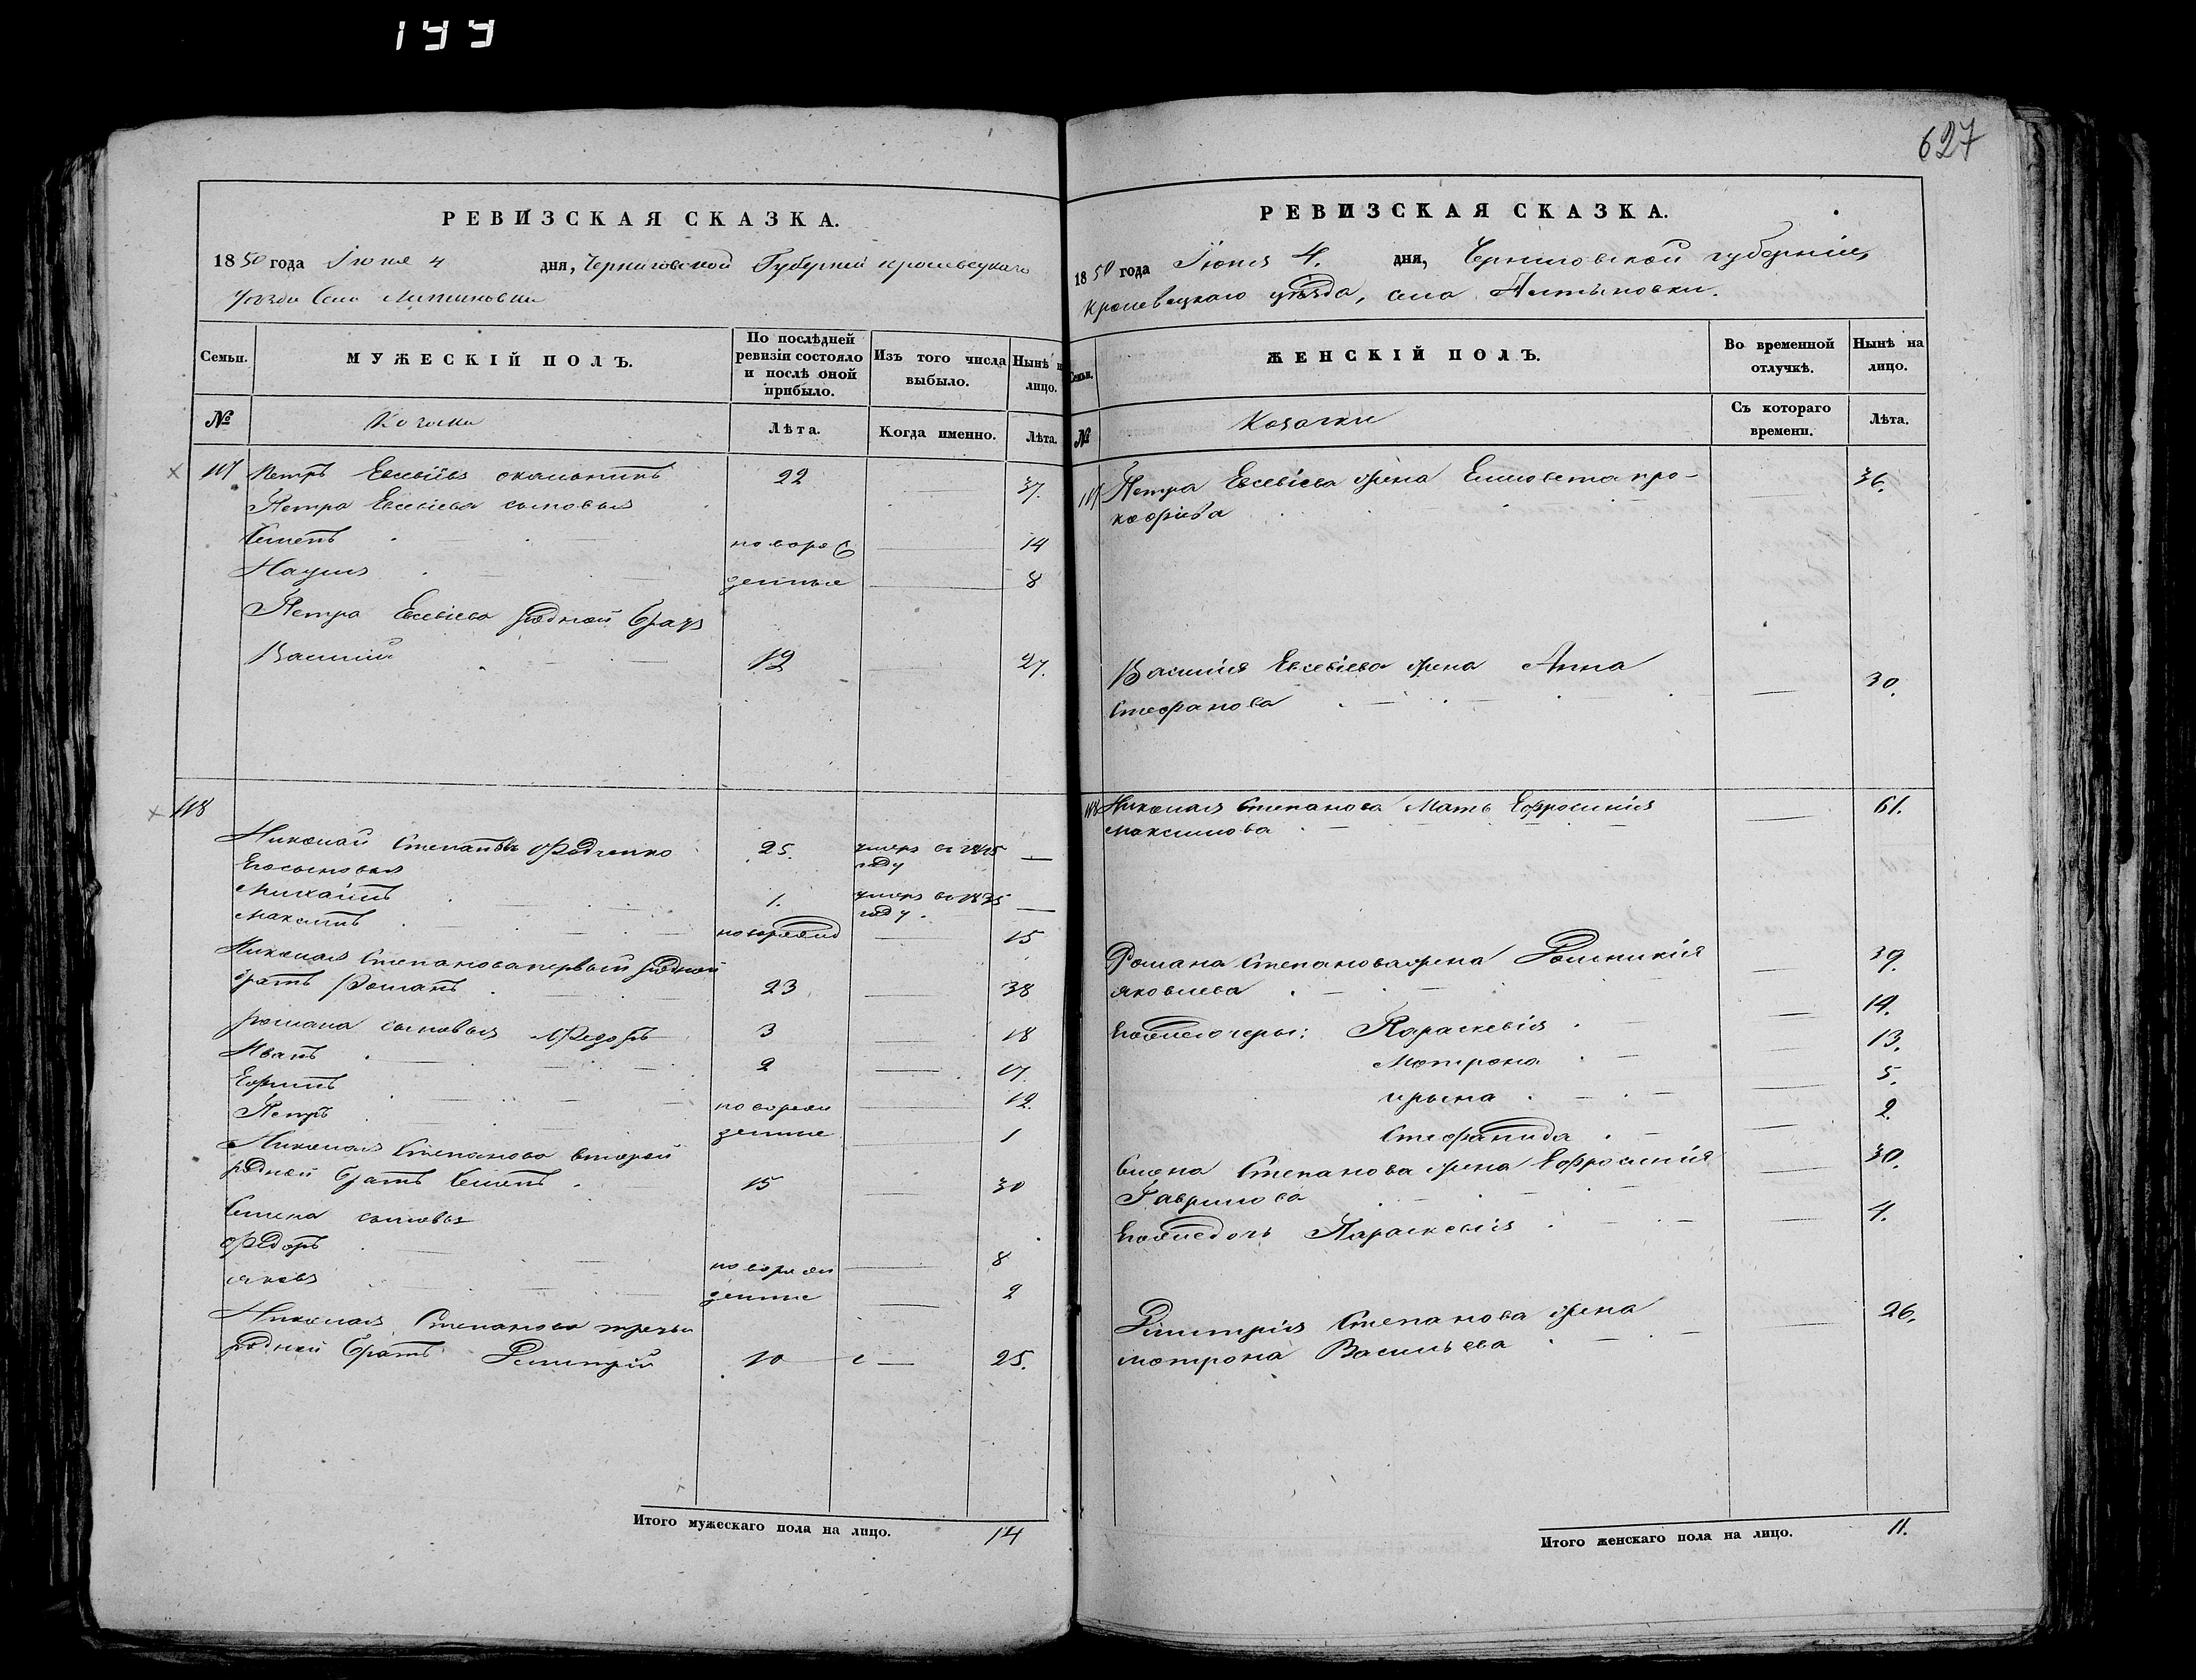 199
627
РЕВИЗСКАЯ СКАЗКА.
1850 года Июня 4 дня, Черниговской Губернии Кролевецкаго
уезда Села
МУЖЕСКІЙ ПОЛЪ.
Семьи.
По послѣдней ревизіи состояло и послѣ оной прибыло.
Изъ того числа выбыло.
Нынѣ на лицо.
№
Козаки
Лѣта.
Когда именно.
Лѣта.
117 Петръ Евсевіевъ 22 37.
Петра Евсевіева сыновья
Семенъ новорож 14
Наумъ денные 8
Петра Евсевіева родной братъ
Василий 12 27.
118
Николай Степановъ Федченко 25. умеръ въ 1845 году —
Его сыновья
Михаилъ 1. умеръ въ 1835 году. —
Максимъ новорожд 15
Николая Степанова первый родной
братъ Романъ 23 38
Романа сыновья Федоръ 3 18
Иванъ 2 17.
Ефимъ новорож 12.
Петръ денные 1
Николая Степанова второй
родной братъ Семенъ 15 30
Семена сыновья
Федоръ новорож 8
Яковъ денные 2
Николая Степанова третий
родной братъ Дмитрій 10 25.
Итого мужескаго пола на лицо. 14
РЕВИЗСКАЯ СКАЗКА.
1850 года Июня 4. дня, Черниговской губерніи,
Кролевецкаго уѣзда, села Алтыновки.
Семьи.
ЖЕНСКІЙ ПОЛЪ.
Во временной отлучкѣ.
Нынѣ на лицо.
№
Козачки
Съ котораго времени.
Лѣта.
117 Петра Евсевіева жена Елисовета Про- 36.
кофиева
Василия Евсевіева жена Анна
Стефанова 30.
118 Николая Степанова мать Ефросинія 61.
Максимова
Романа Степанова жена Домникія 39.
Яковлева
Параскевія 19.
Мотрона 13.
Ирына 5.
Стефанида 2.
Симона Степанова жена Ефросинія 30.
Гаврилова
Параскевія 4.
Димитрія Степанова жена 26.
Мотрона Васильева
Итого женскаго пола на лицо. 11.